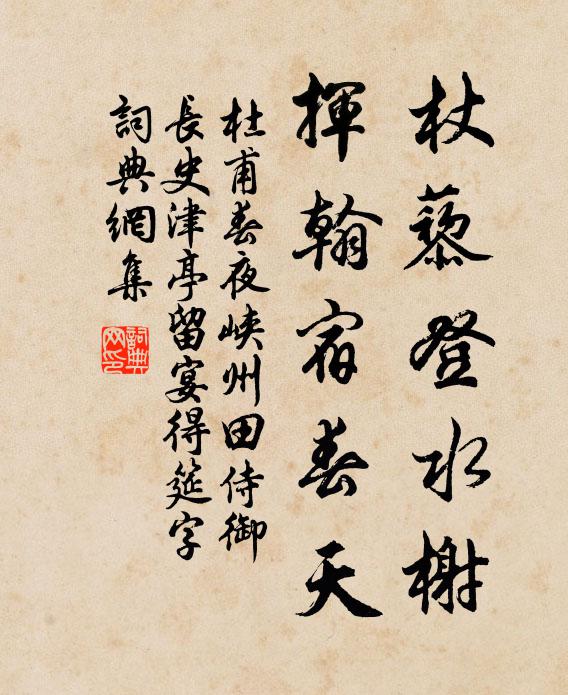 杖藜登水榭
揮翰宿春天
杜甫春夜峽州田侍御
長史津亭留宴得筵字
詞典網集
詞典网印